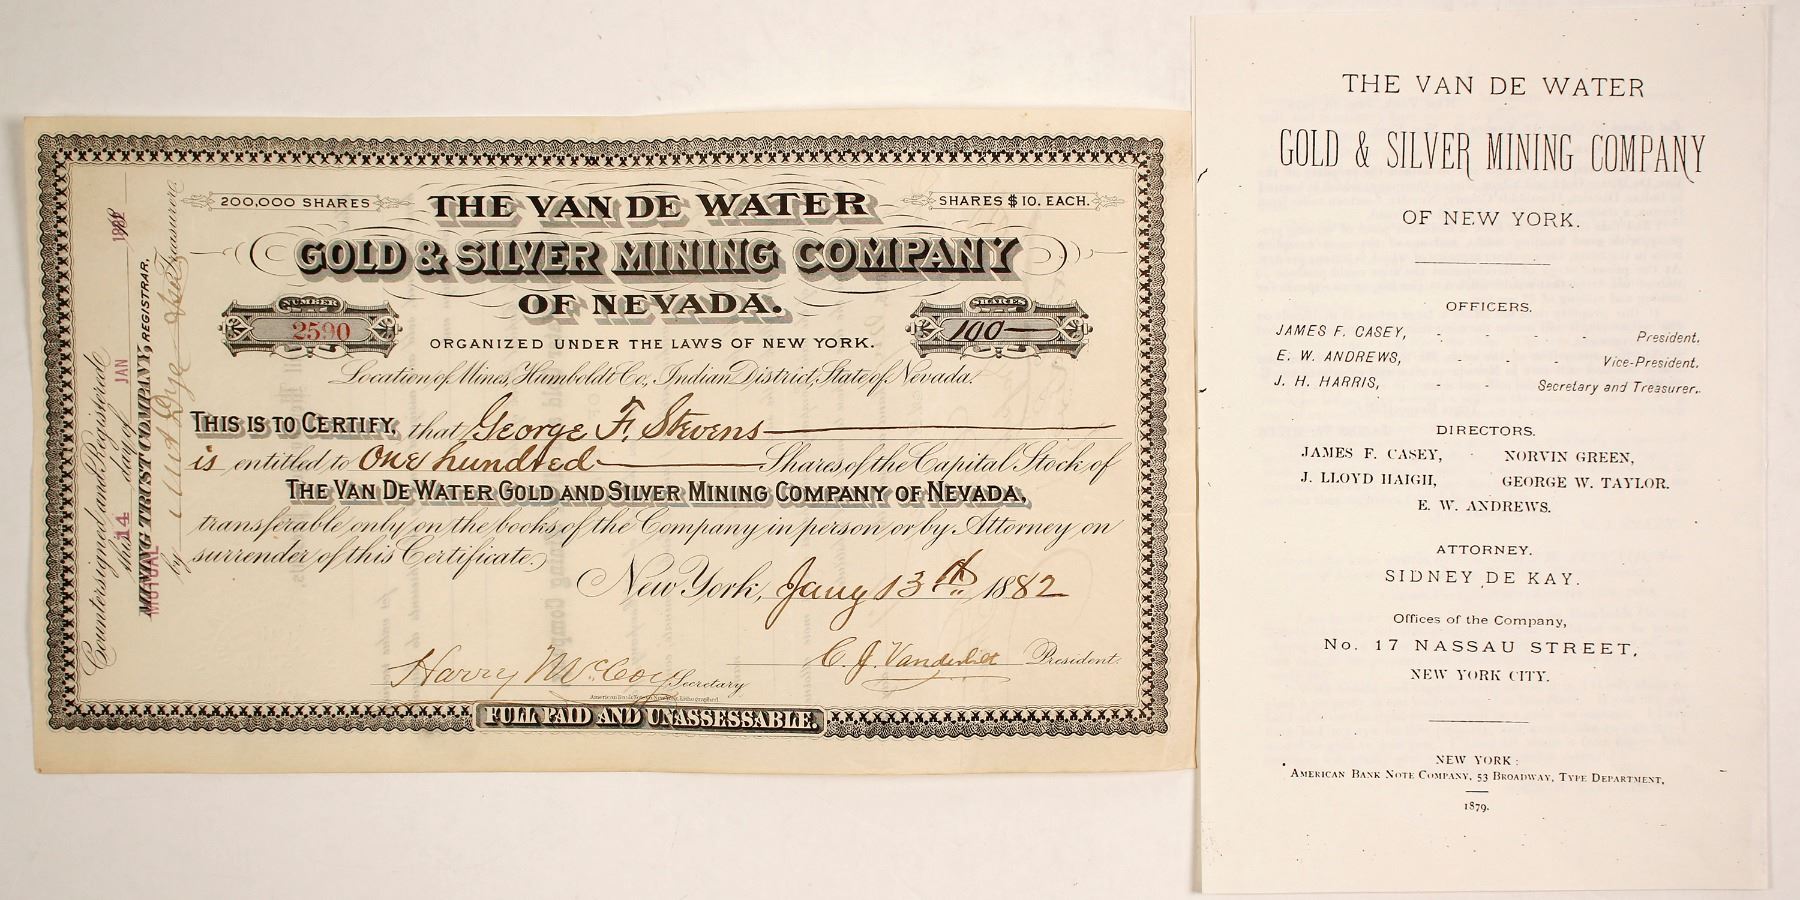 200,000 SHARES
THE VAN DE WATER
SHARES $10. EACH.
GOLD & SILVER MINING COMPANY
OF NEVADA.
NUMBER
2590
SHARES
100
ORGANIZED UNDER THE LAWS OF NEW YORK.
Location of Mines, Humboldt Co., Indian District, State of Nevada.
THIS IS TO CERTIFY, that George F. Stevens
is entitled to One hundred Shares of the Capital Stock of
THE VAN DE WATER GOLD AND SILVER MINING COMPANY OF NEVADA,
transferable only on the books of the Company in person or by Attorney on
surrender of this Certificate.
New York, Jany 13th 1882
Harry McCoy Secretary
C. J. Vanderbilt President.
American Bank Note Co. New York, Lithographed.
FULL PAID AND UNASSESSABLE.
Countersigned and Registered
this 14 day of JAN 188
MUTUAL
MINING TRUST COMPANY, REGISTRAR.
by Dye Treasurer
THE VAN DE WATER
GOLD & SILVER MINING COMPANY
OF NEW YORK.
OFFICERS.
JAMES F. CASEY, - - - - President.
E. W. ANDREWS, - - - Vice-President.
J. H. HARRIS, - - Secretary and Treasurer.
DIRECTORS.
JAMES F. CASEY, NORVIN GREEN,
J. LLOYD HAIGH, GEORGE W. TAYLOR.
E. W. ANDREWS.
ATTORNEY.
SIDNEY DE KAY.
Offices of the Company,
No. 17 NASSAU STREET,
NEW YORK CITY.
NEW YORK:
AMERICAN BANK NOTE COMPANY, 53 BROADWAY, TYPE DEPARTMENT,
1879.